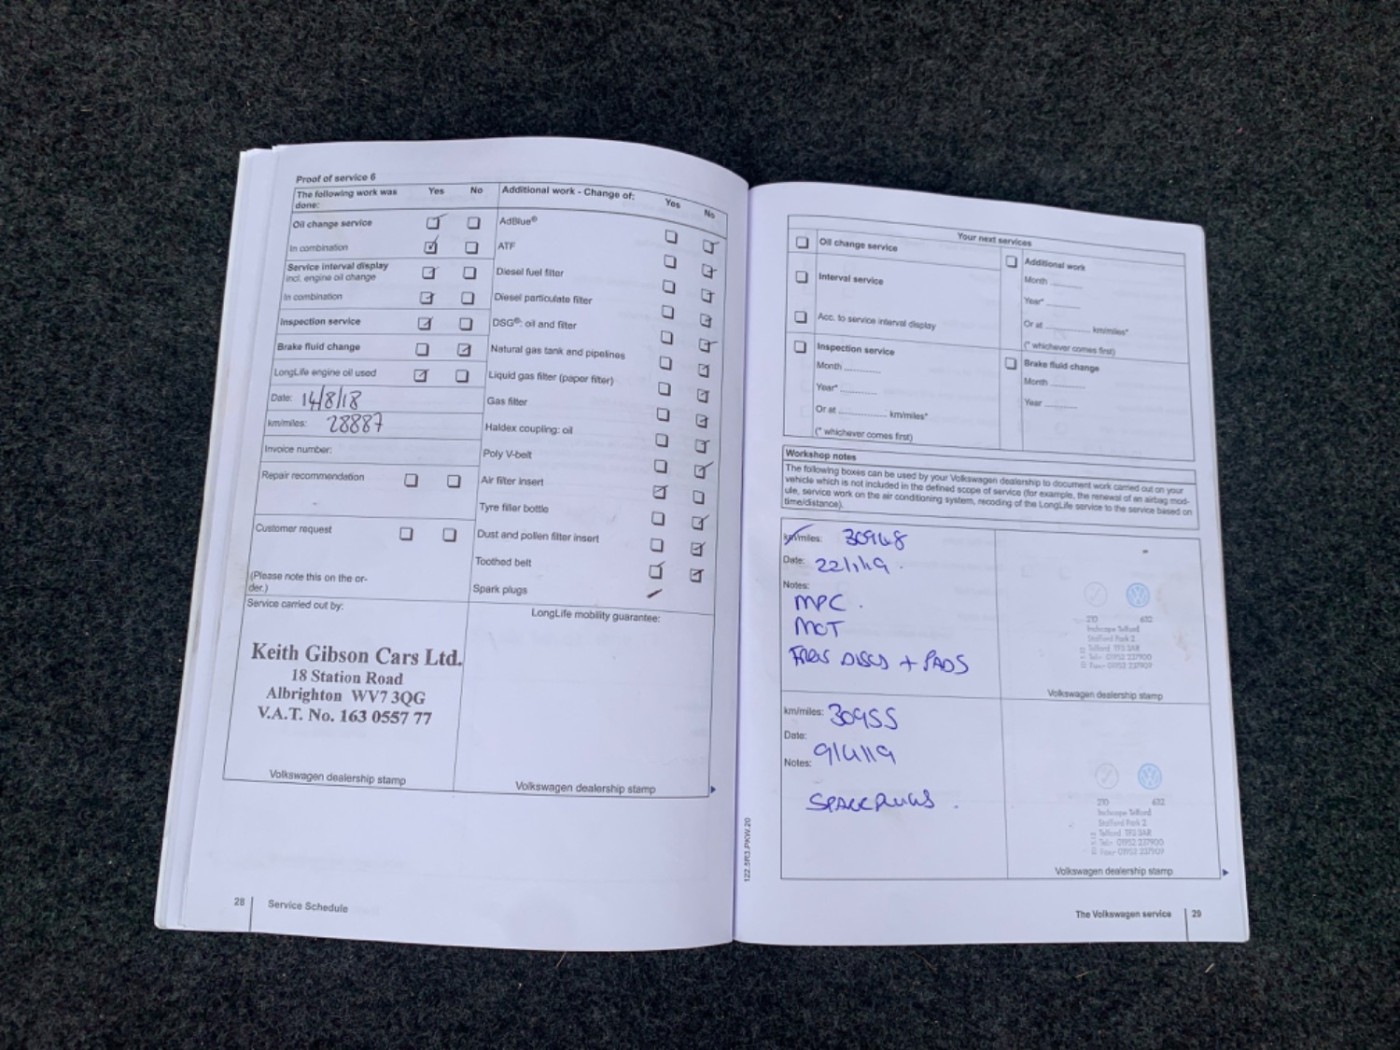 Proof of service 6
The following work was done:
Yes
No
Oil change service
In combination
Service interval display
incl. engine oil change
In combination
Inspection service
Brake fluid change
LongLife engine oil used
Date: 14/8/18
km/miles: 28887
Invoice number:
Repair recommendation
Customer request
(Please note this on the or-
der.)
Service carried out by:
Keith Gibson Cars Ltd.
18 Station Road
Albrighton WV7 3QG
V.A.T. No. 163 0557 77
Volkswagen dealership stamp
Additional work - Change of:
Yes
No
AdBlue®
ATF
Diesel fuel filter
Diesel particulate filter
DSG®: oil and filter
Natural gas tank and pipelines
Liquid gas filter (paper filter)
Gas filter
Haldex coupling: oil
Poly V-belt
Air filter insert
Tyre filler bottle
Dust and pollen filter insert
Toothed belt
Spark plugs
LongLife mobility guarantee:
Volkswagen dealership stamp
28
Service Schedule
Your next services
Oil change service
Interval service
Acc. to service interval display
Inspection service
Month
Year*
Or at km/miles*
(* whichever comes first)
Additional work
Month
Year*
Or at km/miles*
(* whichever comes first)
Brake fluid change
Month
Year
Workshop notes
The following boxes can be used by your Volkswagen dealership to document work carried out on your
vehicle which is not included in the defined scope of service (for example, the renewal of an airbag mod-
ule, service work on the air conditioning system, recoding of the LongLife service to the service based on
time/distance).
km/miles: 30948
Date: 22/1/19
Notes:
MPC
MOT
DISCS + PADS
210 632
Inchcape Telford
Stafford Park 2
Telford TF3 3AB
Tel: 01952 237900
Volkswagen dealership stamp
km/miles: 30955
Date: 9/4/19
Notes:
SPARK PLUGS
210 632
Inchcape Telford
Stafford Park 2
Telford TF3 3AB
Tel: 01952 237900
Volkswagen dealership stamp
122.5R3.PKW.20
The Volkswagen service
29